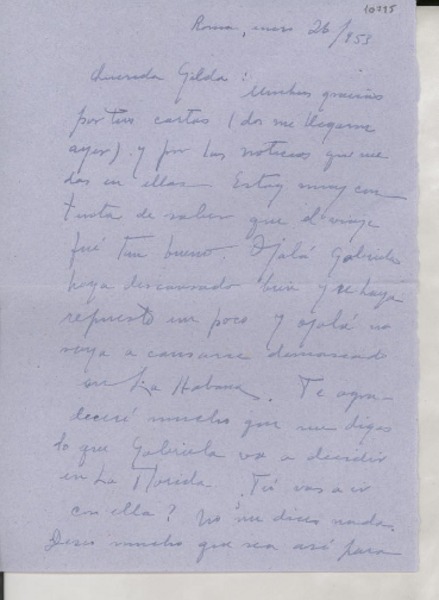 10795
Roma, enero 26/953
Querida Gilda: Muchas gracias
por tus cartas (dos me llegaron
ayer) y por las noticias que me
das en ellas. Estoy muy con-
tenta de saber que el viaje
fué tan bueno. Ojalá Gabriela
haya descansado bien y se haya
repuesto un poco y ojalá no
vaya a cansarse demasiado
en La Habana. Te agra-
deceré mucho que me digas
lo que Gabriela va a decidir
en La Florida. Tú vas a ir
con ella? No me dices nada.
Deseo mucho que sea así para